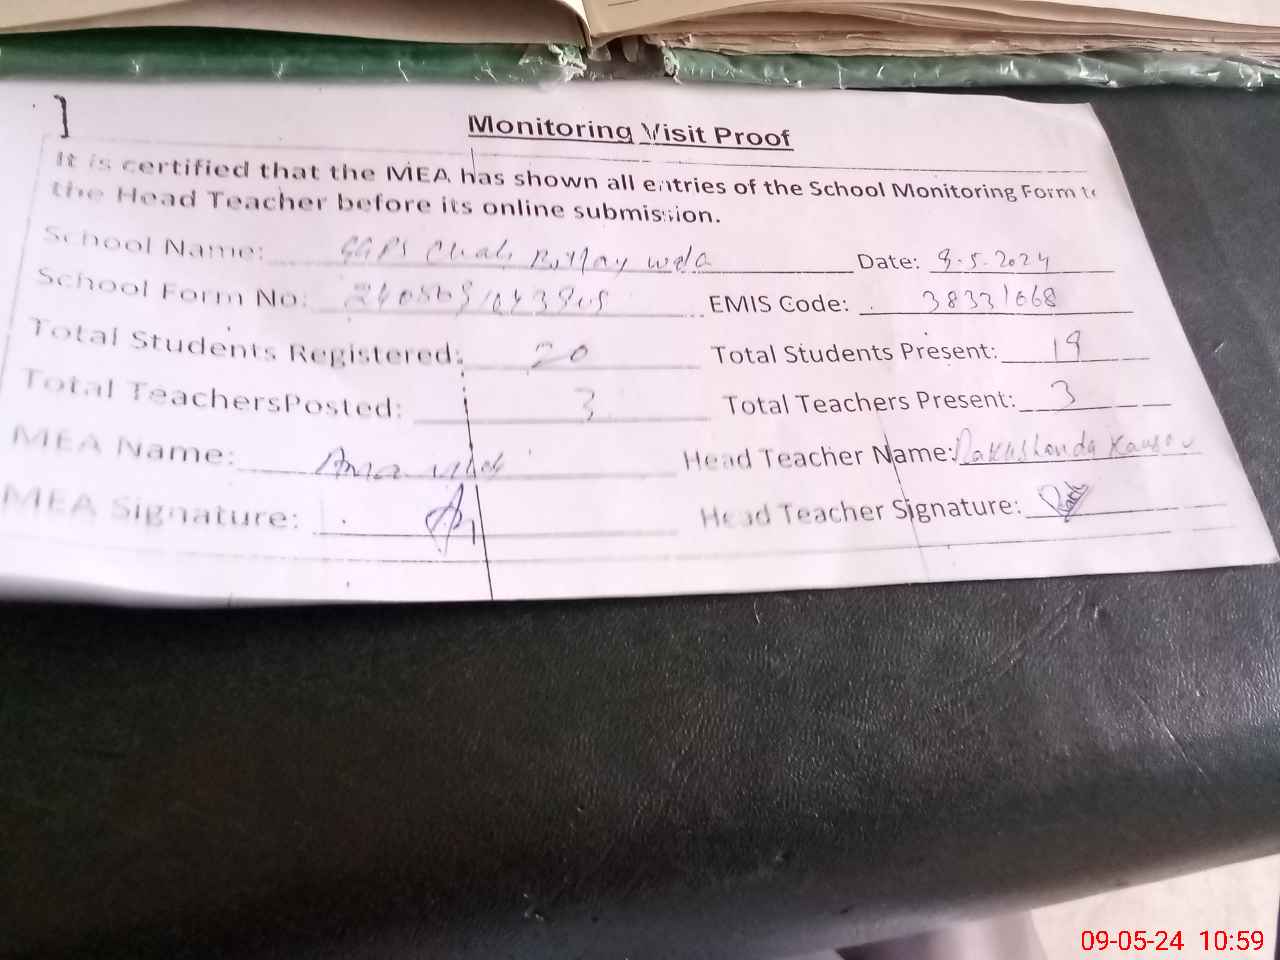 Monitoring Visit Proof
It is certified that the MEA has shown all entries of the School Monitoring Form to
the Head Teacher before its online submission.
School Name: GGPS Chah wala Date: 9.5.2024
School Form No: EMIS Code: 38331068
Total Students Registered: 20 Total Students Present: 19
Total TeachersPosted: 3 Total Teachers Present: 3
MEA Name: Head Teacher Name: Rakhshonda Kausar
MEA Signature: Head Teacher Signature:
09-05-24 10:59